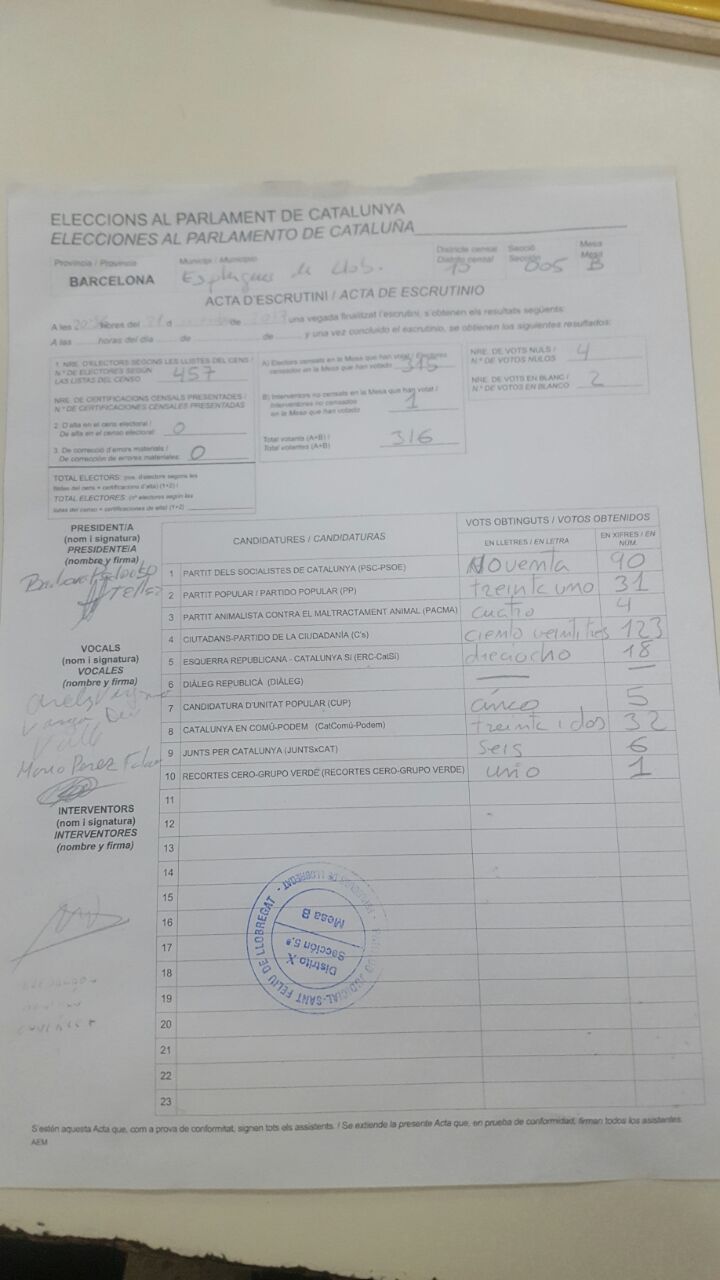 ELECCIONS AL PARLAMENT DE CATALUNYA
ELECCIONES AL PARLAMENTO DE CATALUÑA
Província / Provincia
BARCELONA
Municipi / Municipio
Esplugues de Llob.
Districte censal
Distrito censal
Secció
Sección 005
Mesa
Mesa B
ACTA D'ESCRUTINI / ACTA DE ESCRUTINIO
A les hores del d de 2017 una vegada finalitzat l'escrutini, s'obtenen els resultats següents:
A las horas del día de de y una vez concluido el escrutinio, se obtienen los siguientes resultados:
1. NRE. D'ELECTORS SEGONS LES LLISTES DEL CENS /
N.º DE ELECTORES SEGÚN
LAS LISTAS DEL CENSO 457
NRE. DE CERTIFICACIONS CENSALS PRESENTADES /
N.º DE CERTIFICACIONES CENSALES PRESENTADAS
2. D'alta en el cens electoral /
De alta en el censo electoral: 0
3. De correcció d'errors materials /
De corrección de errores materiales: 0
TOTAL ELECTORS: (nre. d'electors segons les
llistes del cens + certificacions d'alta) (1+2) /
TOTAL ELECTORES: (nº electores según las
listas del censo + certificaciones de alta) (1+2)
A) Electors censats en la Mesa que han votat / Electores
censados en la Mesa que han votado 315
B) Interventors no censats en la Mesa que han votat /
Interventores no censados
en la Mesa que han votado 1
Total votants (A+B) /
Total votantes (A+B) 316
NRE. DE VOTS NULS /
N.º DE VOTOS NULOS 4
NRE. DE VOTS EN BLANC /
N.º DE VOTOS EN BLANCO 2
PRESIDENT/A
(nom i signatura)
PRESIDENTE/A
(nombre y firma)
VOCALS
(nom i signatura)
VOCALES
(nombre y firma)
Mario Perez
INTERVENTORS
(nom i signatura)
INTERVENTORES
(nombre y firma)
CANDIDATURES / CANDIDATURAS
VOTS OBTINGUTS / VOTOS OBTENIDOS
EN LLETRES / EN LETRA
EN XIFRES / EN NÚM.
1 PARTIT DELS SOCIALISTES DE CATALUNYA (PSC-PSOE) Noventa 90
2 PARTIT POPULAR / PARTIDO POPULAR (PP) treinta uno 31
3 PARTIT ANIMALISTA CONTRA EL MALTRACTAMENT ANIMAL (PACMA) cuatro 4
4 CIUTADANS-PARTIDO DE LA CIUDADANÍA (C's) ciento veintitres 123
5 ESQUERRA REPUBLICANA - CATALUNYA SÍ (ERC-CatSí) dieciocho 18
6 DIÀLEG REPUBLICÀ (DIÀLEG) — —
7 CANDIDATURA D'UNITAT POPULAR (CUP) cinco 5
8 CATALUNYA EN COMÚ-PODEM (CatComú-Podem) treinta i dos 32
9 JUNTS PER CATALUNYA (JUNTSxCAT) seis 6
10 RECORTES CERO-GRUPO VERDE (RECORTES CERO-GRUPO VERDE) uno 1
11
12
13
14
15
16
17
18
19
20
21
22
23
Distrito X
Sección 5.ª
Mesa B
JUDICIAL-SANT FELIU DE LLOBREGAT -
S'estén aquesta Acta que, com a prova de conformitat, signen tots els assistents. / Se extiende la presente Acta que, en prueba de conformidad, firman todos los asistentes.
AEM